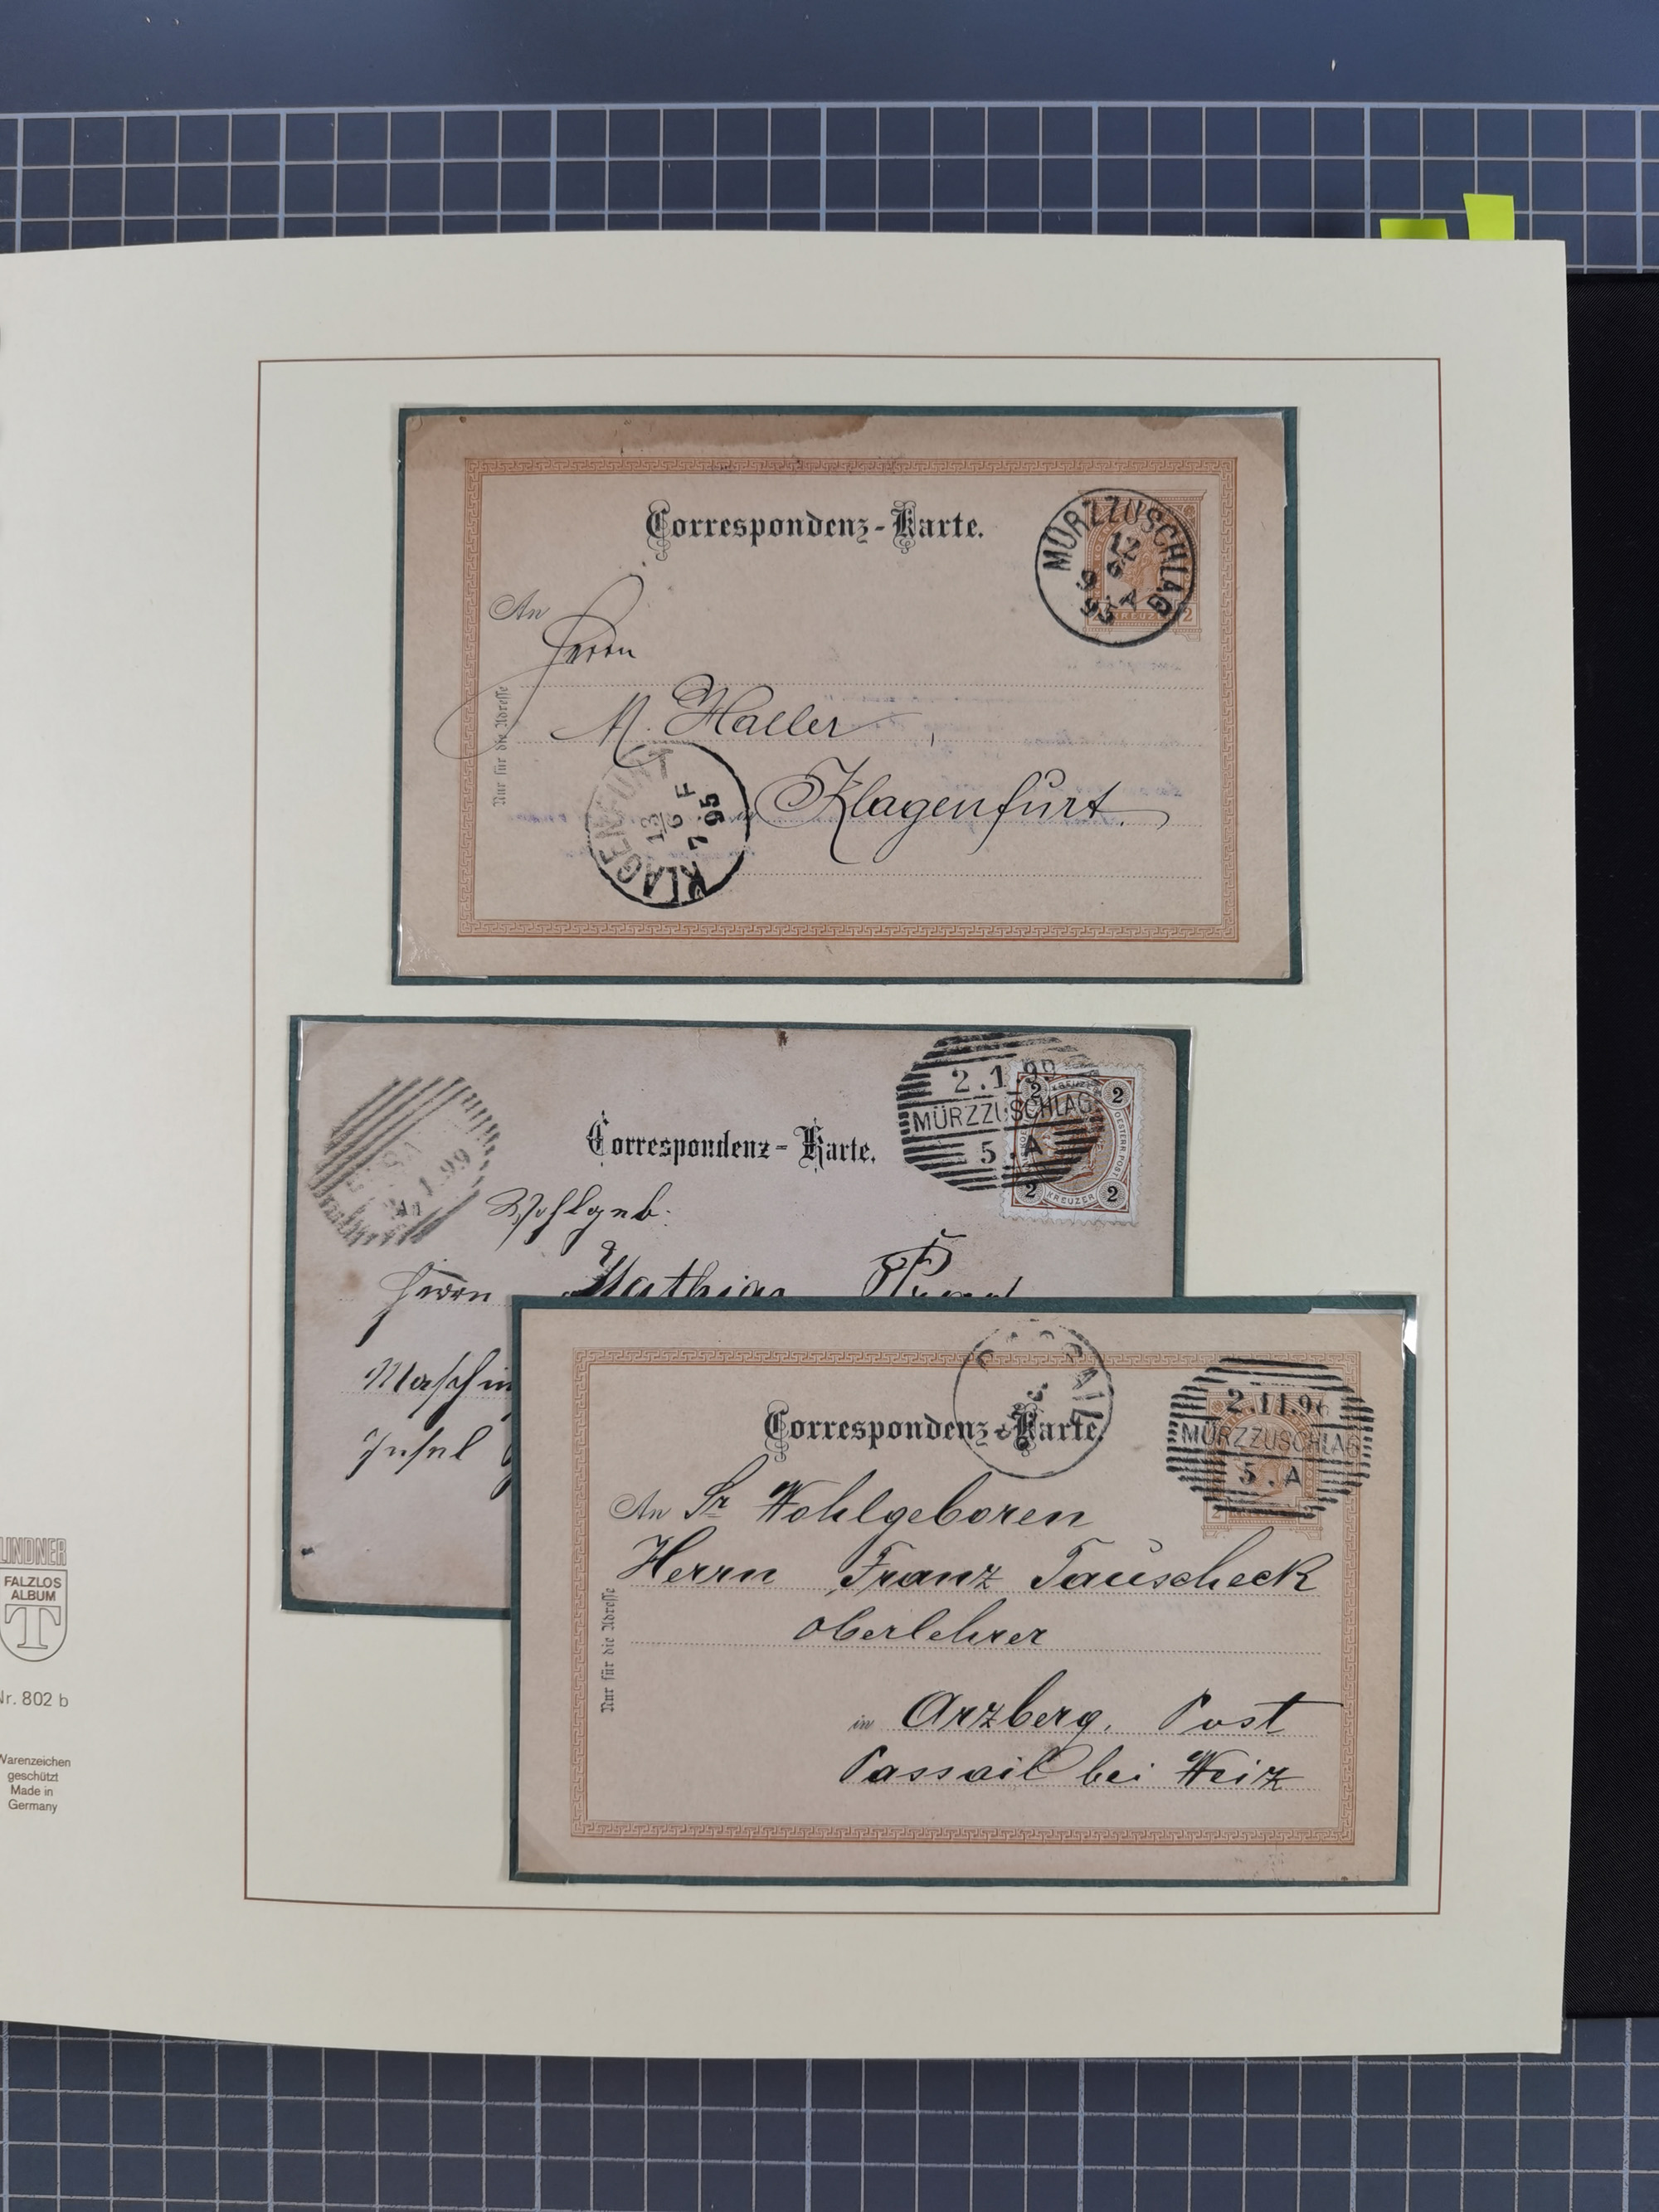 Correspondenz-Karte.
MÜRZZUSCHLAG
12
9
95
2 KREUZER 2
An
Herrn
M. Haller
Nur für die Adresse
in Klagenfurt.
KLAGENFURT
13
6 F
7
95
Correspondenz-Karte.
2.1.99
MÜRZZUSCHLAG
5.A
2 KREUZER 2
OESTERR. POST
2 KREUZER 2
1.99
Wohlgeb.
Herrn Mathias
Maschin
Insel
Correspondenz-Karte.
PASSAIL
2.11.96
MÜRZZUSCHLAG
5.A
2
An Sr Wohlgeboren
Herrn Franz Tauscheck
Oberlehrer
Nur für die Adresse
in Arzberg, Post
Passail bei Weiz
LINDNER
FALZLOS
ALBUM
T
Nr. 802 b
Warenzeichen
geschützt
Made in
Germany